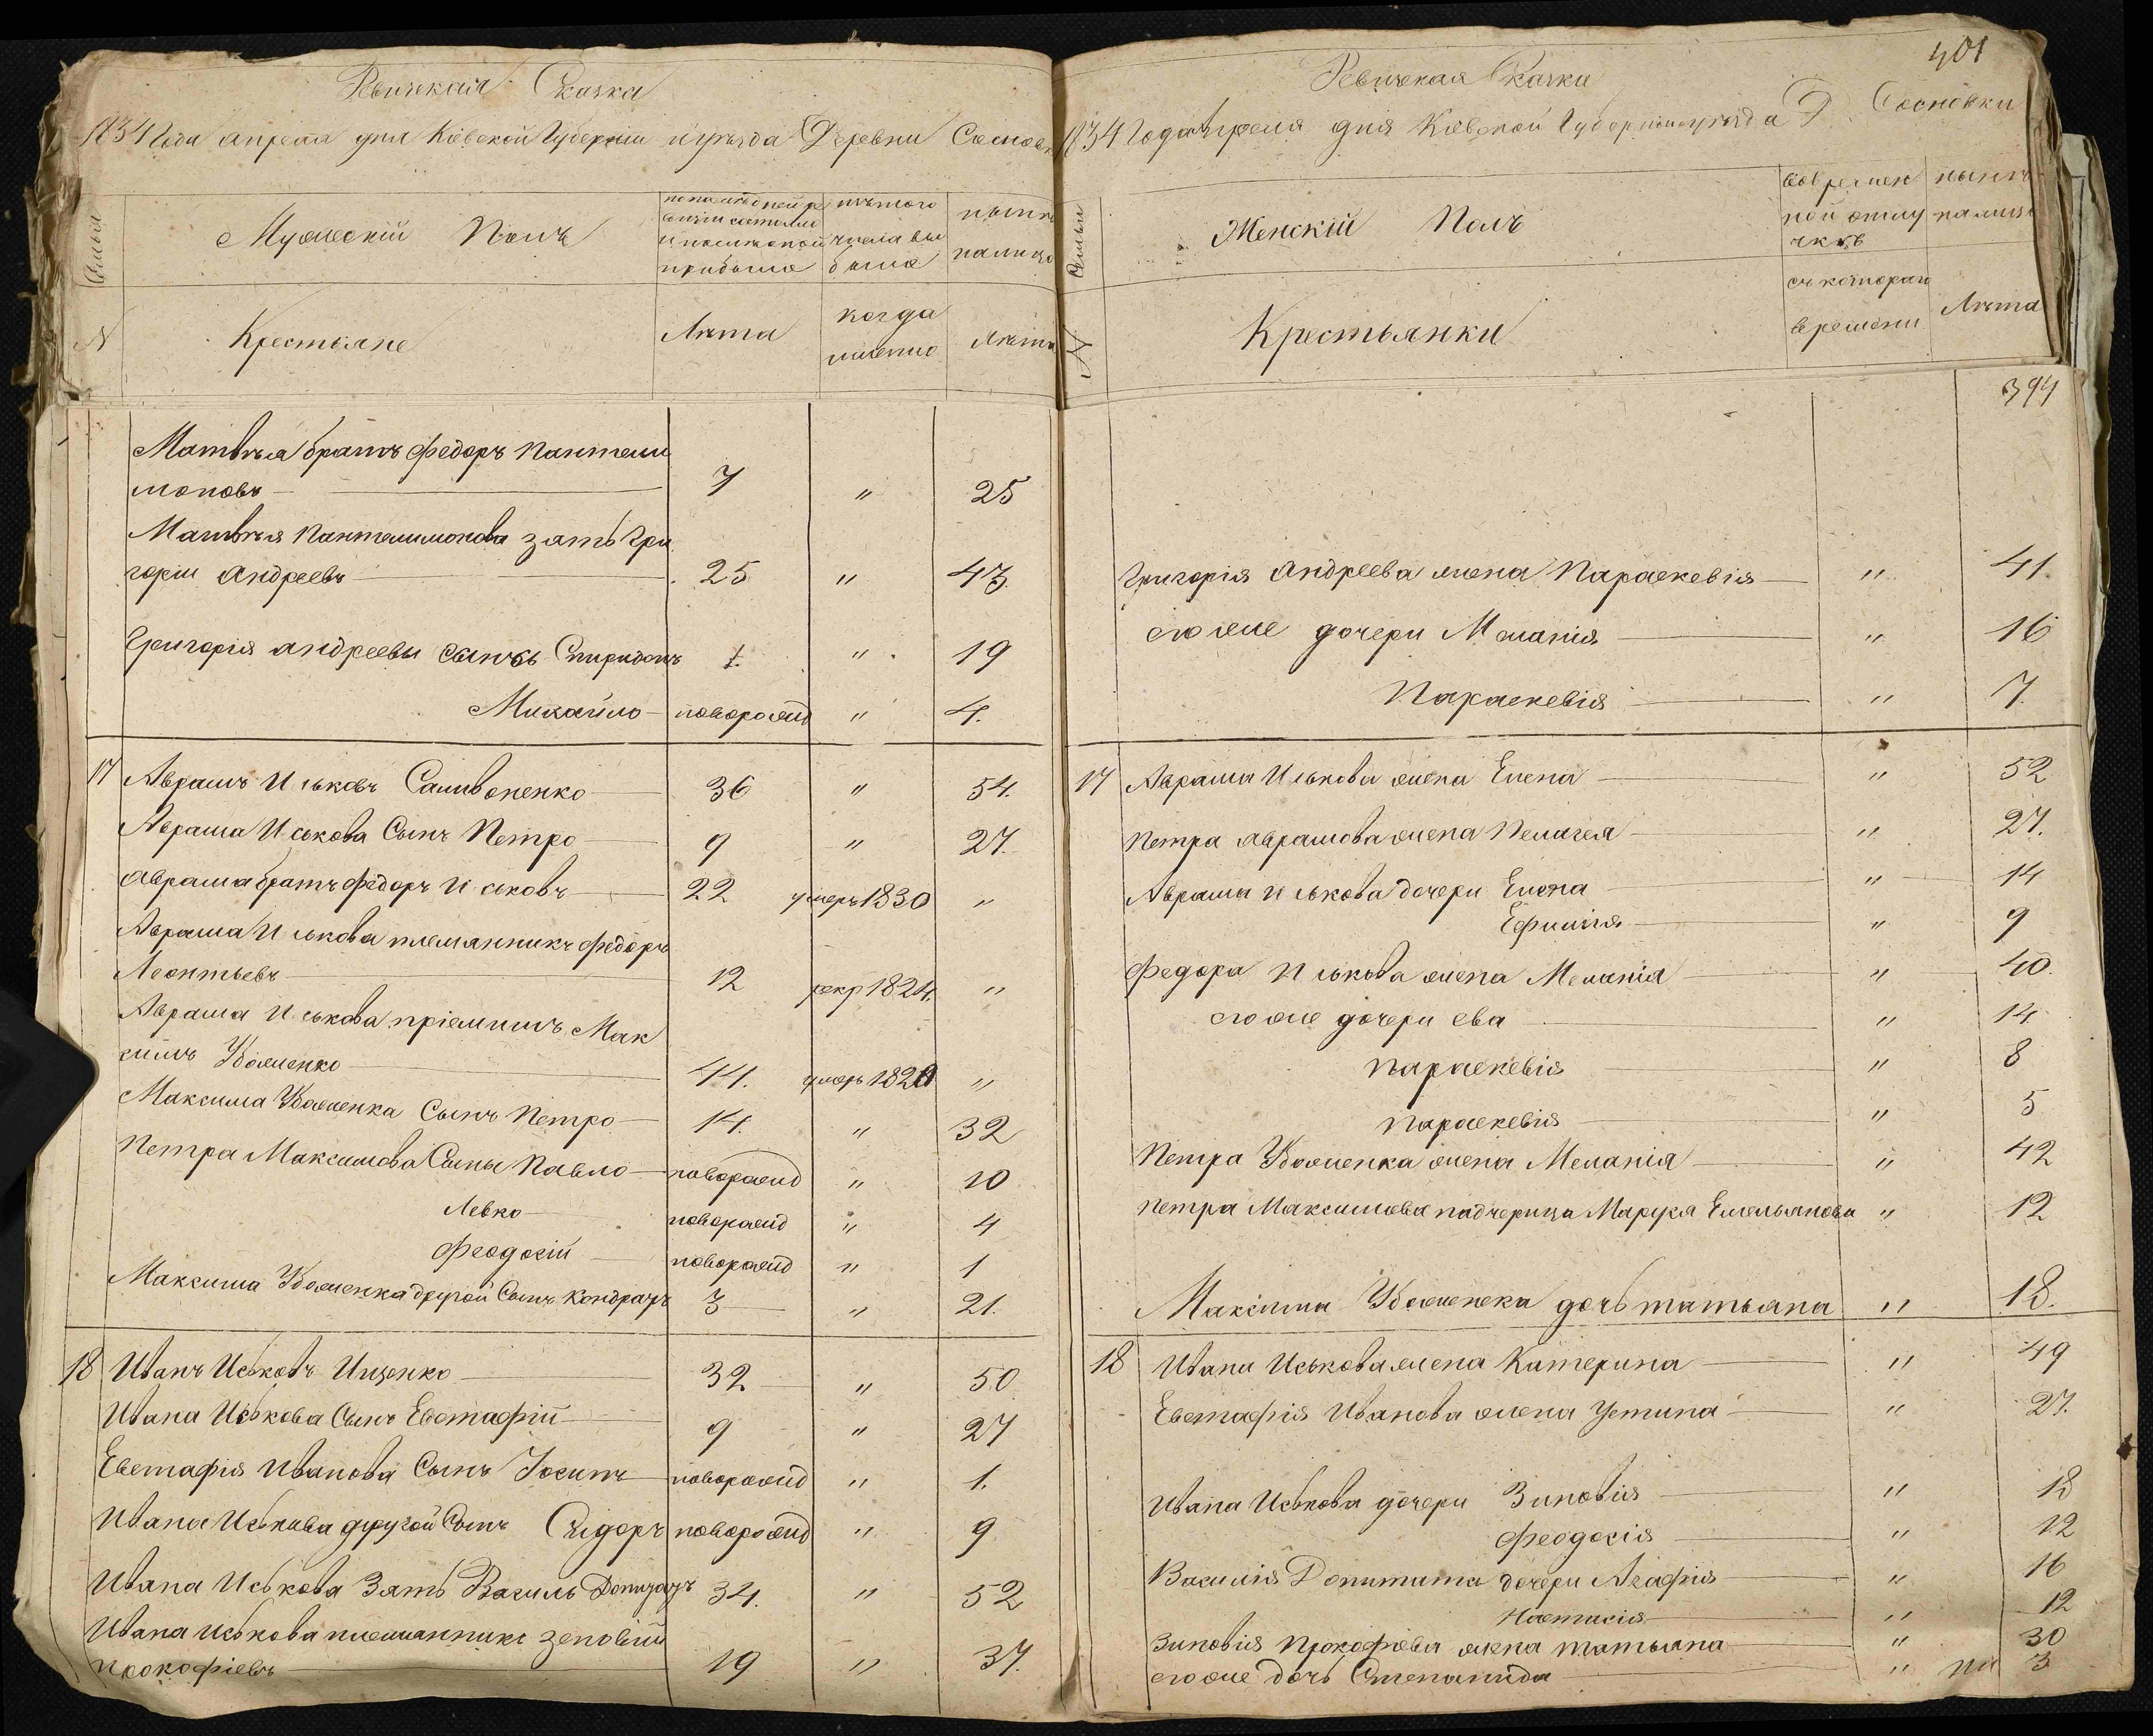 Ревизская Сказка
1834 Года апреля дня Кіевской Губерніи и уезда Деревни Соснов
Семьи
Мужескій Полъ
по последней ревизіи состояло и после оной прибыло
изъ того числа выбыло
ныне на лицо
N
Крестьяне
Лета
когда именно
Лета
Матвея братъ Федоръ Пантели
моновъ 7 " 25
Матвея Пантелимонова зять Гри
горій Андреевъ 25 " 43
Григорія Андреевы сыновъ Спиридонъ 1. " 19
Михайло новорожд " 4.
17 Абрамъ Иськовъ Саливоненко 36 " 54.
Абрама Иськова Сынъ Петро 9 " 27
Абрама братъ Федоръ Иськовъ 22 умеръ 1830 "
Абрама Иськова племянникъ Федоръ
Леонтьевъ 12 рекр 1824. "
Абрама Иськова пріемышъ Мак
симъ 44. умеръ 1820 "
Максима Сынъ Петро 14. " 32
Петра Максимова Сыны Павло новорожд " 10
Левко новорожд " 4
Феодосій новорожд " 1
Максима другой Сынъ Кондратъ 3 " 21.
18 Иванъ Иськовъ Ищенко 32 " 50
Ивана Иськова Сынъ Евстафій 9 " 27
Евстафія Иванова Сынъ Іосипъ новорожд " 1.
Ивана Иськова другой Сынъ Сидоръ новорожд " 9
Ивана Иськова Зять Василь 34. " 52
Ивана Иськова племянникъ Зеновій
Прокофіевъ 19 " 37.
401
Ревизская Сказка
1834 Года Апреля дня Кіевской Губерніи и уезда Д. Сосновки
Семьи
Женскій Полъ
во временной отлучке
ныне на лицо
N
Крестьянки
съ котораго времени
Лета
394
Григорія Андреева жена Параскевія " 41.
его же дочери Меланія " 16
Параскевія " 7.
17 Абрама Иськова жена Елена " 52
Петра Абрамова жена Пелагея " 27.
Абрама Иськова дочери Елена " 14
Ефимія " 9
Федора Иськова жена Меланія " 40.
его же дочери Ева " 14.
Параскевія " 8
Параскевія " 5
Петра жена Меланія " 42
Петра Максимова падчерица Марья Емельянова " 12
Максима дочь татьяна " 18.
18 Ивана Иськова жена Катерина " 49
Евстафія Иванова жена Устина " 27.
Ивана Иськова дочери Зиновія " 18
Феодосія " 12
Василія дочери Агафія " 16
Настасія " 12
Зиновія Прокофіева жена татьяна " 30
его же дочь Степанида " 3